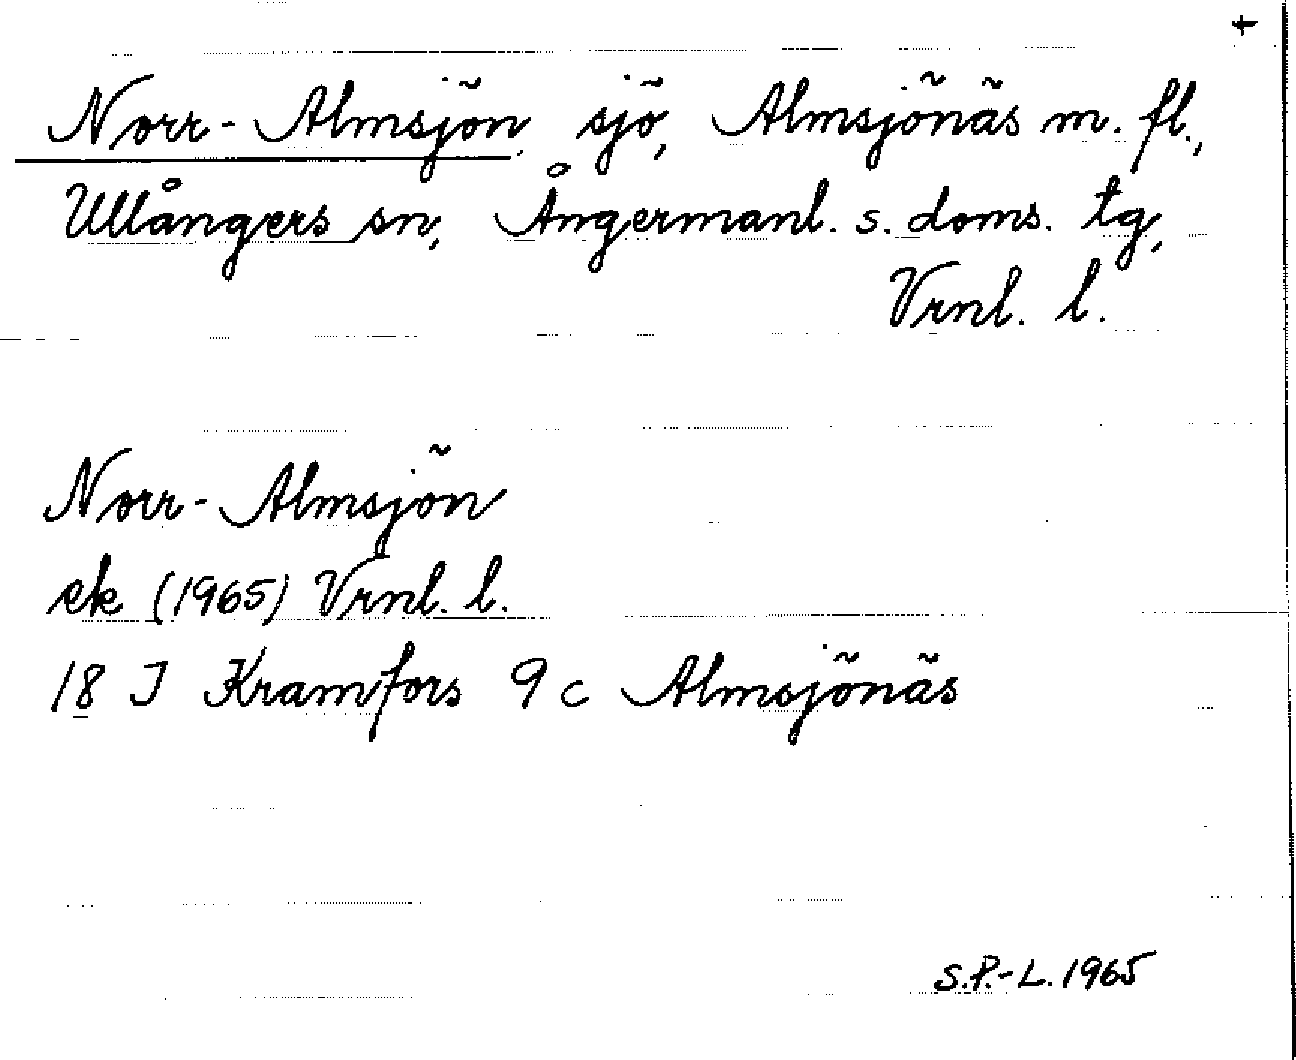 +
Norr-Almsjön, sjö, Almsjönäs m. fl.,
Ullångers sn, Ångermanl. s. doms. tg,
Vrnl. l.
Norr-Almsjön
ek (1965) Vrnl. l.
18 J Kramfors 9 c Almsjönäs
S.P.-L. 1965